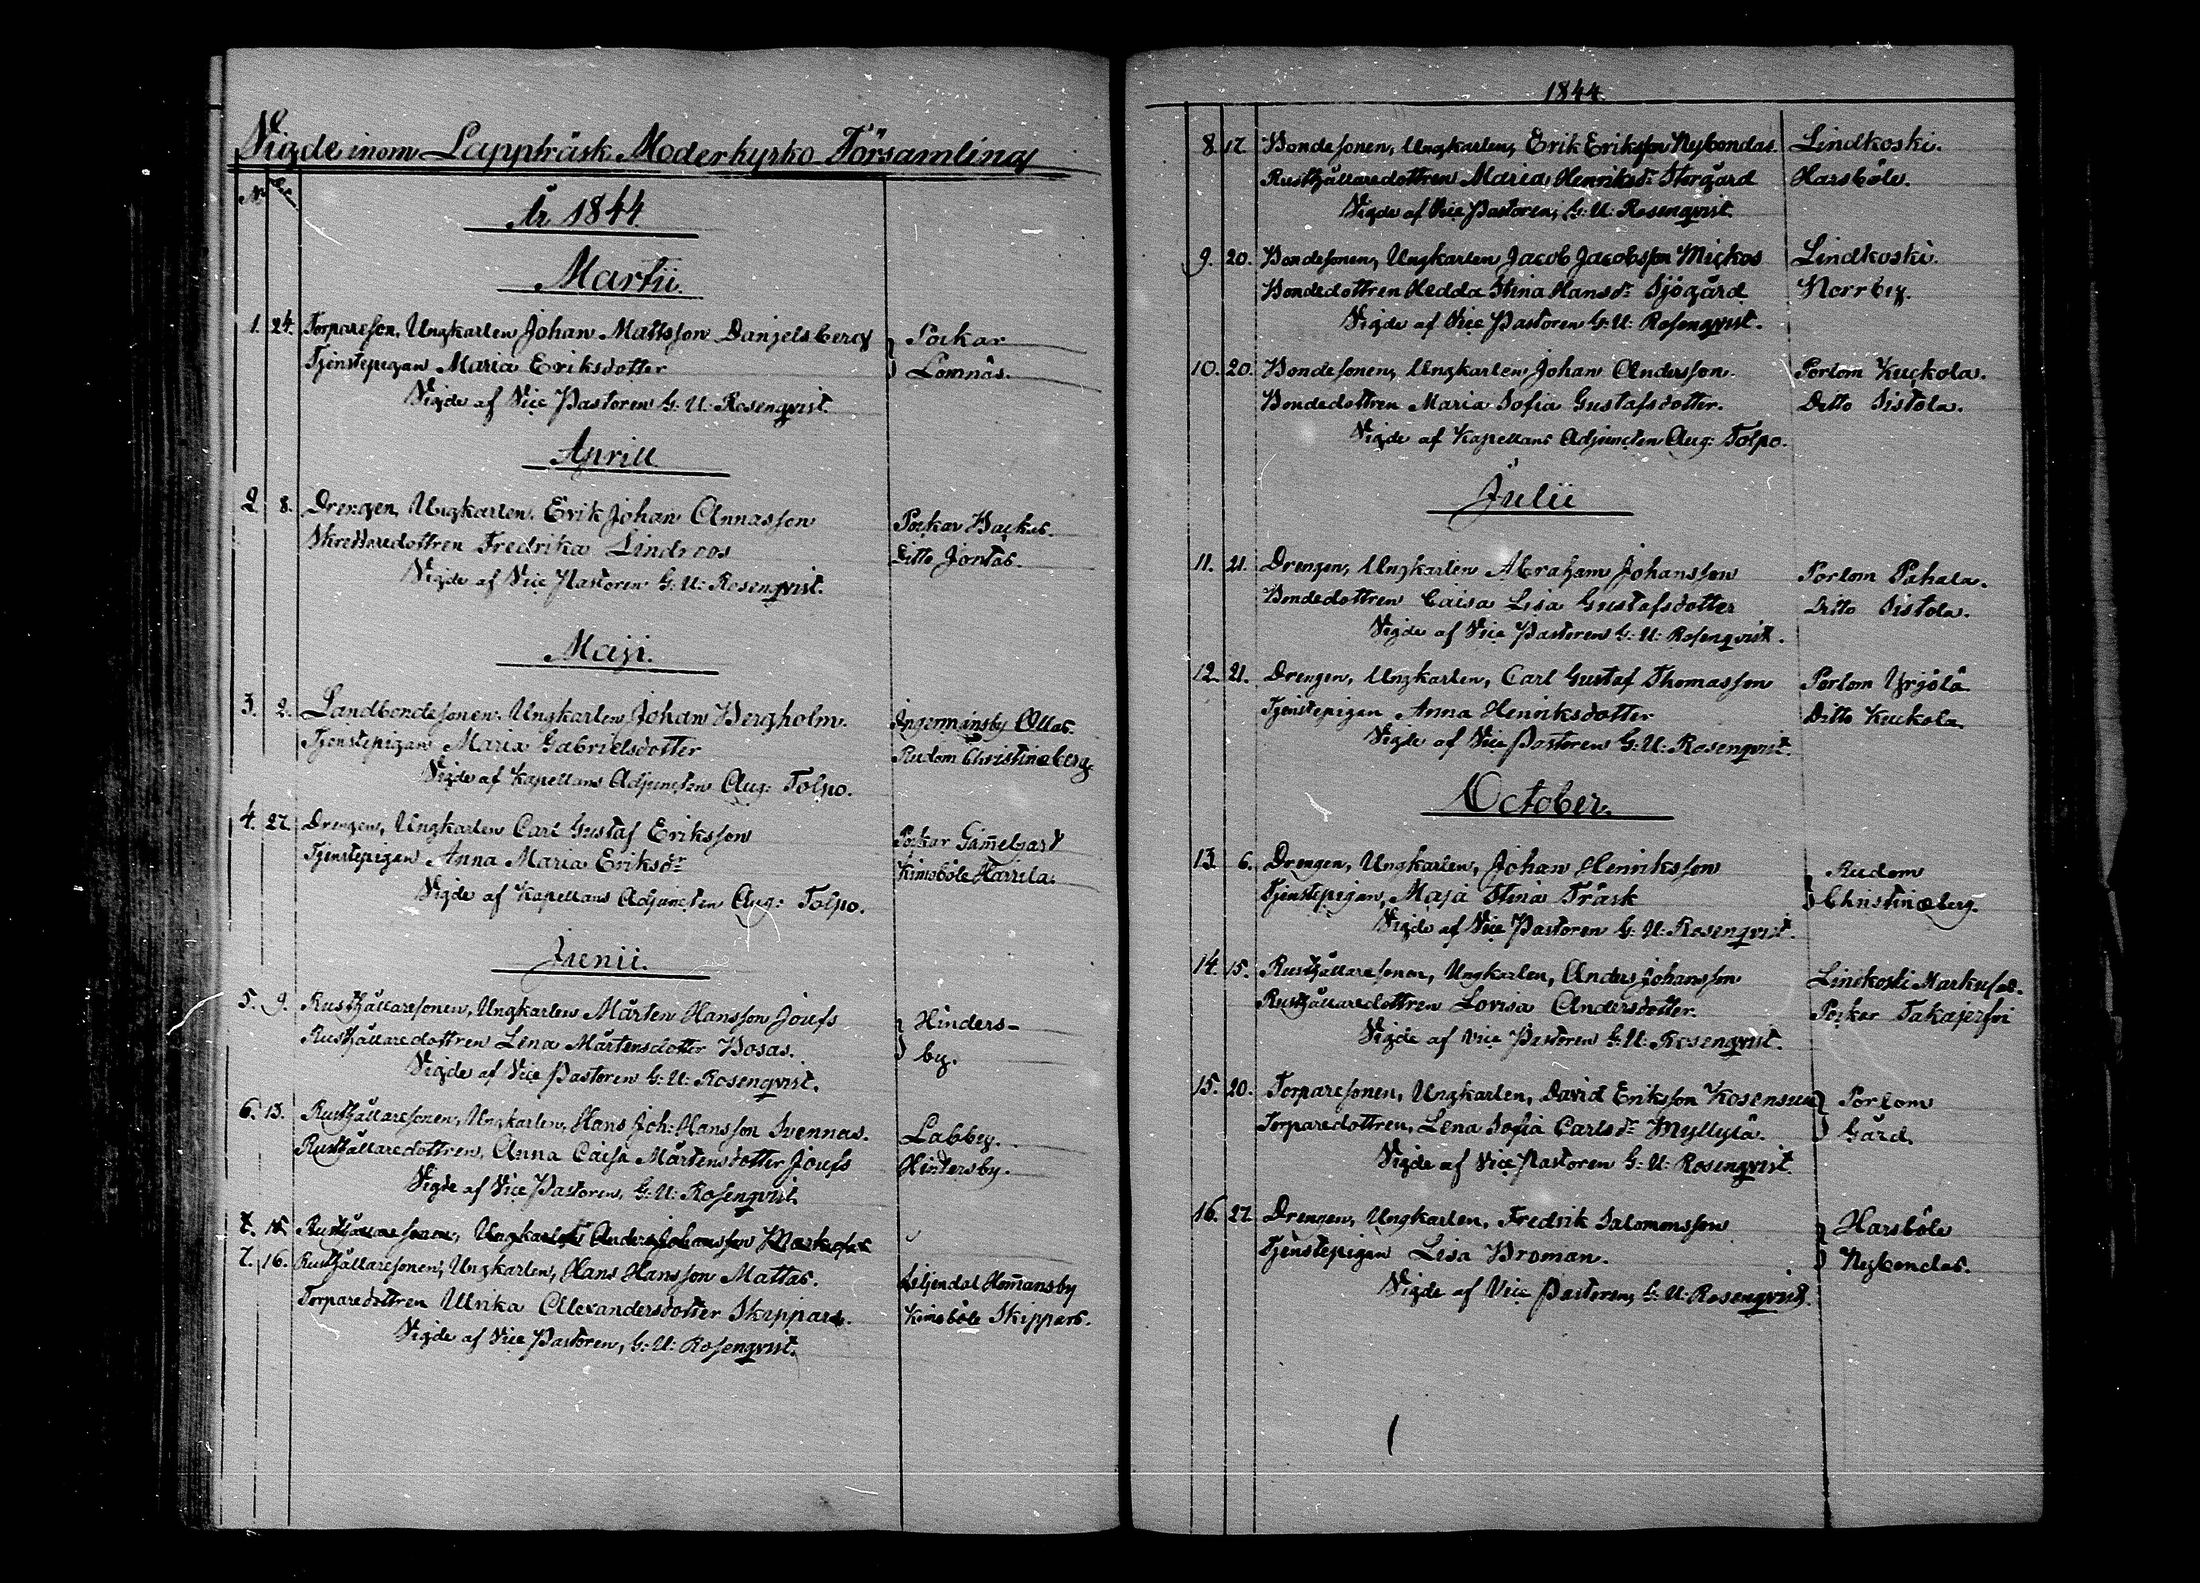 Vigde inom Lappträsk Moderkyrko Församling
N:
År 1844.
Martii.
1. 24. Torpareson, Ungkarlen Johan Mattsson Danjelsberg } Pockar
Tjenstepigan Maria Eriksdotter } Lomnäs.
Vigde af Vice Pastoren G: U: Rosenqvist.
Aprill
2 8. Drengen, Ungkarlen, Erik Johan Annasson Pockar Backas.
Skreddaredottren Fredrika Lindroos Ditto Jontas.
Vigde af Vice Pastoren G: U: Rosenqvist.
Maji.
3. 2. Landbondesonen, Ungkarlen, Johan Bergholm. Ingermansby Ollas.
Tjenstepigan Maria Gabrielsdotter Rudom Christinæberg
Vigde af Kapellans Adjuncten Aug: Tolpo.
4. 27. Drengen, Ungkarlen Carl Gustaf Eriksson Pockar Gam̅elgard
Tjenstepigan Anna Maria Eriksdr Kimoböle Harrila.
Vigde af Kapellans Adjuncten Aug: Tolpo.
Junii.
5. 9. Rusthållaresonen, Ungkarlen Mårten Hansson Joufs } Hinders-
Rusthållaredottren Lena Mårtensdotter Bosas. } by.
Vigde af Vice Pastoren G: U: Rosenqvist.
6. 13. Rusthållaresonen, Ungkarlen, Hans Joh: Hansson Svennas. Labby.
Rusthållaredottren, Anna Caisa Mårtensdotter Joufs Hindersby.
Vigde af Vice Pastoren, G: U: Rosenqvist.
7. 15 Rusthållaresonen, Ungkarlen Anders Johansson Markusas
7. 16. Rusthållaresonen, Ungkarlen, Hans Hansson Mattas. Liljendal Hom̅ansby
Torparedottren Ulrika Alexandersdotter Skippars. Kimoböle Skippars.
Vigde af Vice Pastoren, G: U: Rosenqvist.
1844.
8 17 Bondesonen, Ungkarlen, Erik Eriksson Nybondas. Lindkoski.
Rusthållaredottren Maria Henriksdr Storgård Harsböle.
Vigde af Vice Pastoren, G: U: Rosenqvist.
9. 20. Bondesonen, Ungkarlen Jacob Jacobsson Mickos Lindkoski.
Bondedottren Hedda Stina Hansdr Sjögård Norrby.
Vigde af Vice Pastoren G: U: Rosenqvist.
10. 20. Bondesonen, Ungkarlen Johan Andersson. Porlom Kuckola.
Bondedottren Maria Sofia Gustafsdotter. Ditto Sistola.
Vigde af Kapellans Adjuncten Aug: Tolpo.
Julii
11. 21. Drengen, Ungkarlen Abraham Johansson Porlom Pahala.
Bondedottren Caisa Lisa Gustafsdotter Ditto Sistola.
Vigde af Vice Pastoren G: U: Rosenqvist.
12. 21. Drengen, Ungkarlen, Carl Gustaf Thomasson Porlom Yrjölä
Tjenstepigan Anna Henriksdotter Ditto Kuckola
Vigde af Vice Pastoren G: U: Rosenqvist
October.
13. 6. Drengen, Ungkarlen, Johan Henriksson } Rudom
Tjenstepigan, Maja Stina Träsk } Christinæberg.
Vigde af Vice Pastoren G: U: Rosenqvist.
14. 15. Rusthållaresonen, Ungkarlen, Anders Johansson Lindkoski Markusas.
Rusthållaredottren Lovisa Andersdotter. Pockar Takajerfvi
Vigde af Vice Pastoren G: U: Rosenqvist.
15. 20. Torparesonen, Ungkarlen, David Eriksson Kosensuu } Porlom
Torparedottren, Lena Sofia Carlsdr Myllylä. } Gård.
Vigde af Vice Pastoren G: U: Rosenqvist
16. 27. Drengen, Ungkarlen, Fredrik Salomonsson } Harsböle
Tjenstepigan Lisa Broman. } Nybondas.
Vigde af Vice Pastoren, G: U: Rosenqvist.